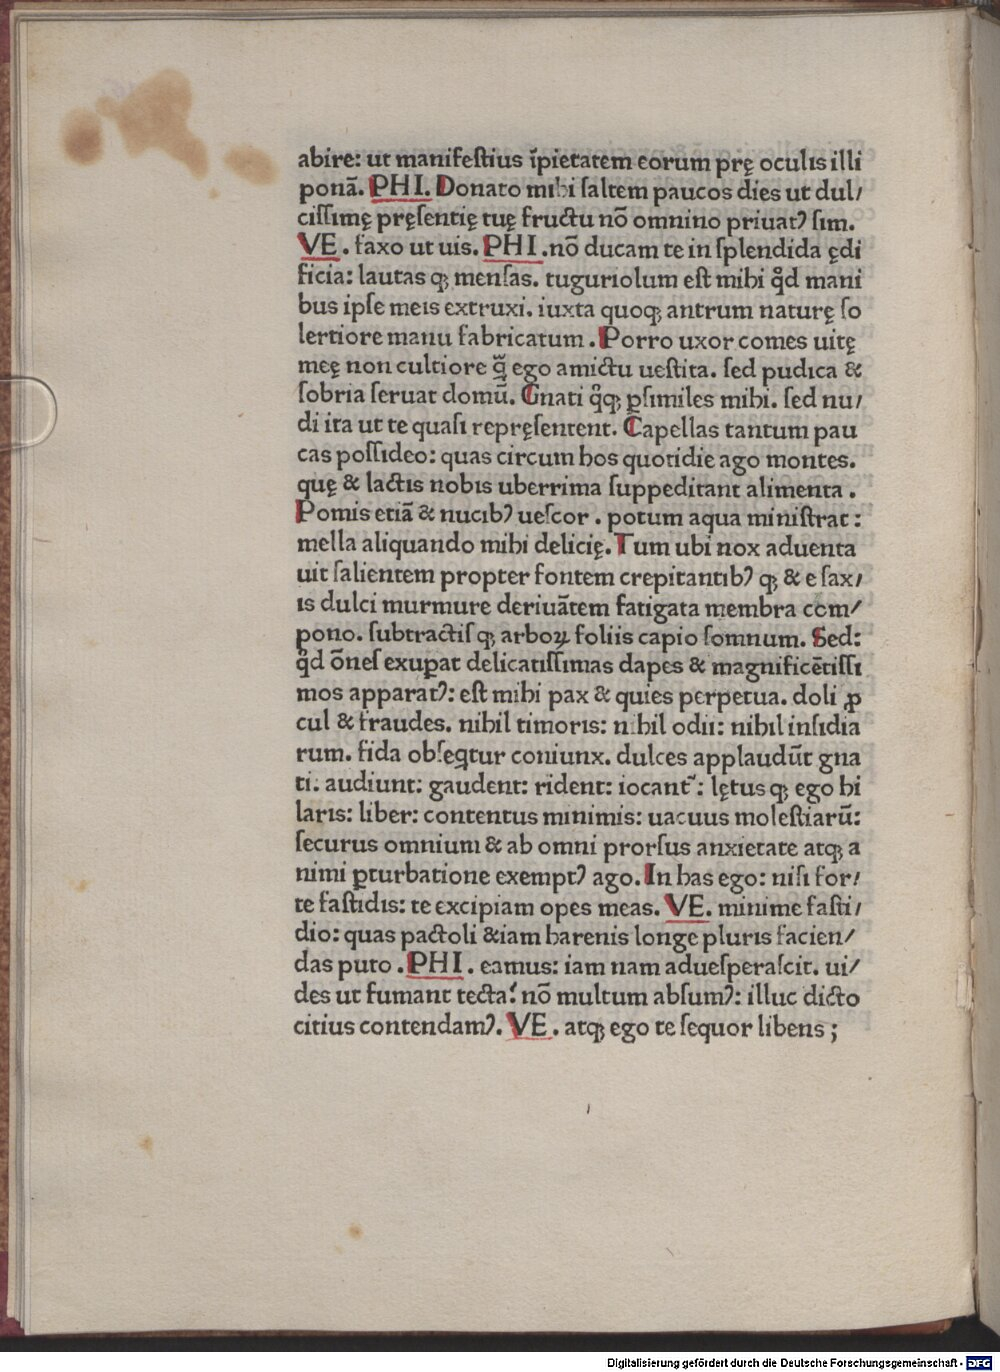 abire: ut manifeſtius ĩpietatem eorum prę oculis illi
ponã. PHI. Donato mihi ſaltem paucos dies ut dul/
ciſſimę pręſentię tuę fructu nõ omnino priuatꝰ ſim.
VE. faxo ut uis. PHI. nõ ducam te in ſplendida ędi
ficia: lautas qꝫ menſas. tuguriolum eſt mihi qͦd mani
bus ipſe meis extruxi. iuxta quoqꝫ antrum naturę ſo
lertiore manu fabricatum. Porro uxor comes uitę
meę non cultiore q̃ ego amictu ueſtita. ſed pudica &
ſobria ſeruat domũ. Gnati qͦqꝫ ꝑſimiles mihi. ſed nu/
di ita ut te quaſi repręſentent. Capellas tantum pau
cas poſſideo: quas circum hos quotidie ago montes.
quę & lactis nobis uberrima ſuppeditant alimenta.
Pomis etiã & nucibꝰ ueſcor. potum aqua miniſtrat:
mella aliquando mihi delicię. Tum ubi nox aduenta
uit ſalientem propter fontem crepitantibꝰ qꝫ & e ſax/
is dulci murmure deriuãtem fatigata membra com/
pono. ſubtractiſ qꝫ arboꝝ foliis capio ſomnum. Sed:
qͦd õneſ exuꝑat delicatiſſimas dapes & magnificẽtiſſi
mos apparatꝰ: eſt mihi pax & quies perpetua. doli ꝓ
cul & fraudes. nihil timoris: nihil odii: nihil inſidia
rum. fida obſeqtur coniunx. dulces applaudũt gna
ti. audiunt: gaudent: rident: iocant᷑: lętus qꝫ ego hi
laris: liber: contentus minimis: uacuus moleſtiarũ:
ſecurus omnium & ab omni prorſus anxietate atqꝫ a
nimi ꝑturbatione exemptꝰ ago. In has ego: niſi for/
te faſtidis: te excipiam opes meas. VE. minime faſti/
dio: quas pactoli &iam harenis longe pluris facien/
das puto. PHI. eamus: iam nam adueſperaſcit. ui/
des ut fumant tecta? nõ multum abſumꝰ: illuc dicto
citius contendamꝰ. VE. atqꝫ ego te ſequor libens;
Digitalisierung gefördert durch die Deutsche Forschungsgemeinschaft - DFG